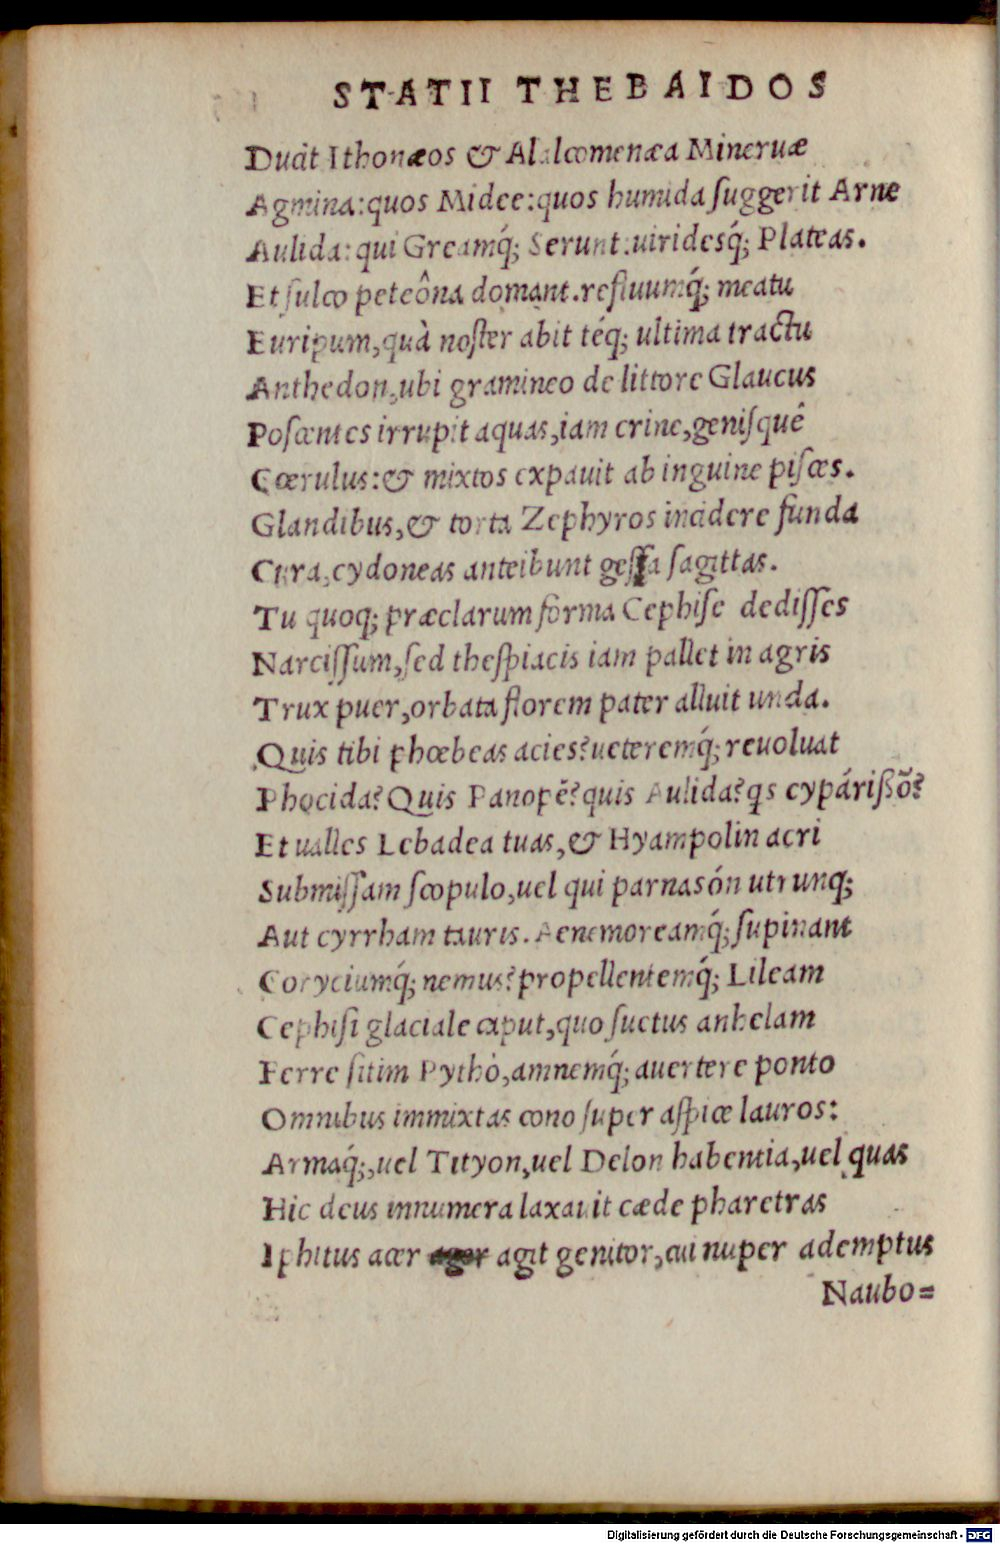 STATII THEBAIDOS
Ducit Ithonæos & Alalcomenæa Mineruæ
Agmina: quos Midee: quos humida ſuggerit Arne
Aulida: qui Greamq́; Serunt: uiridesq́; Plateas.
Et ſulco peteôna domant. refluumq́; meatu
Euripum, quà noſter abit téq; ultima tractu
Anthedon, ubi gramineo de littore Glaucus
Poſcentes irrupit aquas, iam crine, geniſquê
Cœrulus: & mixtos expauit ab inguine piſces.
Glandibus, & torta Zephyros incidere funda
Cura, cydoneas anteibunt geſſa ſagittas.
Tu quoq; præclarum forma Cephiſe dediſſes
Narciſſum, ſed theſpiacis iam pallet in agris
Trux puer, orbata florem pater alluit unda.
Quis tibi phœbeas acies? ueteremq́; reuoluat
Phocida? Quis Panopē? quis Aulida? qs cypáriſſõ?
Et ualles Lebadea tuas, & Hyampolin acri
Submiſſam ſcopulo, uel qui parnasón utrunq;
Aut cyrrham tauris. Aenemoreamq́; ſupinant
Coryciumq́; nemus? propellentemq́; Lileam
Cephiſi glaciale caput, quo ſuetus anhelam
Ferre ſitim Pythò, amnemq́; auertere ponto
Omnibus immixtas cono ſuper aſpice lauros:
Armaq́;, uel Tityon, uel Delon habentia, uel quas
Hic deus innumera laxauit cæde pharetras
Iphitus acer ager agit genitor, cui nuper ademptus
Naubo=
Digitalisierung gefördert durch die Deutsche Forschungsgemeinschaft - DFG